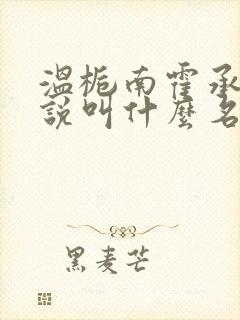 温栀南霍承
說叫什麼名
黑麦芒